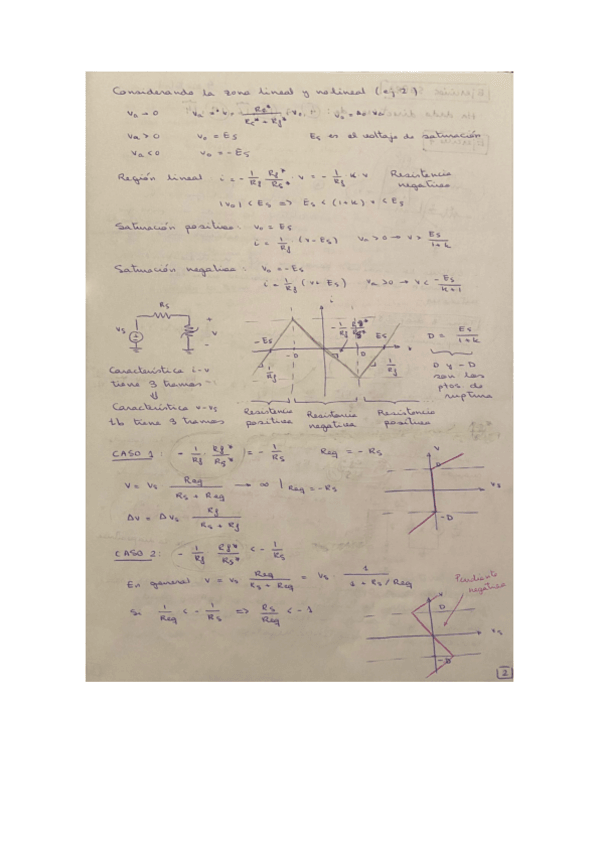 Considerando la zona lineal y no lineal (ej 2)
Va → 0
Va > 0 Vo = Es Es es el voltaje de saturación
Va < 0 Vo = -Es
Región lineal i = -1/Rf · Rf*/Rs* · v = -1/Rf · k · v Resistencia
negativa
|Vo| < Es => Es < (1+k) v < Es
Saturación positiva: Vo = Es
i = 1/Rf (v - Es) Va > 0 → v > Es/(1+k)
Saturación negativa: Vo = -Es
i = 1/Rf (v + Es) Va > 0 → v < -Es/(k+1)
Rs
Vs
+
v
-
i
-Es
-D
D
Es
v
1/Rf
-1/Rf
1/Rf
D = Es/(1+k)
D y -D
son los
ptos. de
ruptura
Característica i-v
tiene 3 tramos
Característica v-vs
tb tiene 3 tramos
Resistencia
positiva
Resistencia
negativa
Resistencia
positiva
CASO 1: -1/Rf · Rf*/Rs* = -1/Rs Req = -Rs
V = Vs Req/(Rs + Req) → ∞ | Req = -Rs
Δv = ΔVs Rf/(Rs + Rf)
v
D
Vs
-D
CASO 2: -1/Rf Rf*/Rs* < -1/Rs
En general v = Vs Req/(Rs + Req) = Vs 1/(1 + Rs/Req)
Si 1/Req < -1/Rs => Rs/Req < -1
Pendiente
negativa
v
D
Vs
-D
2